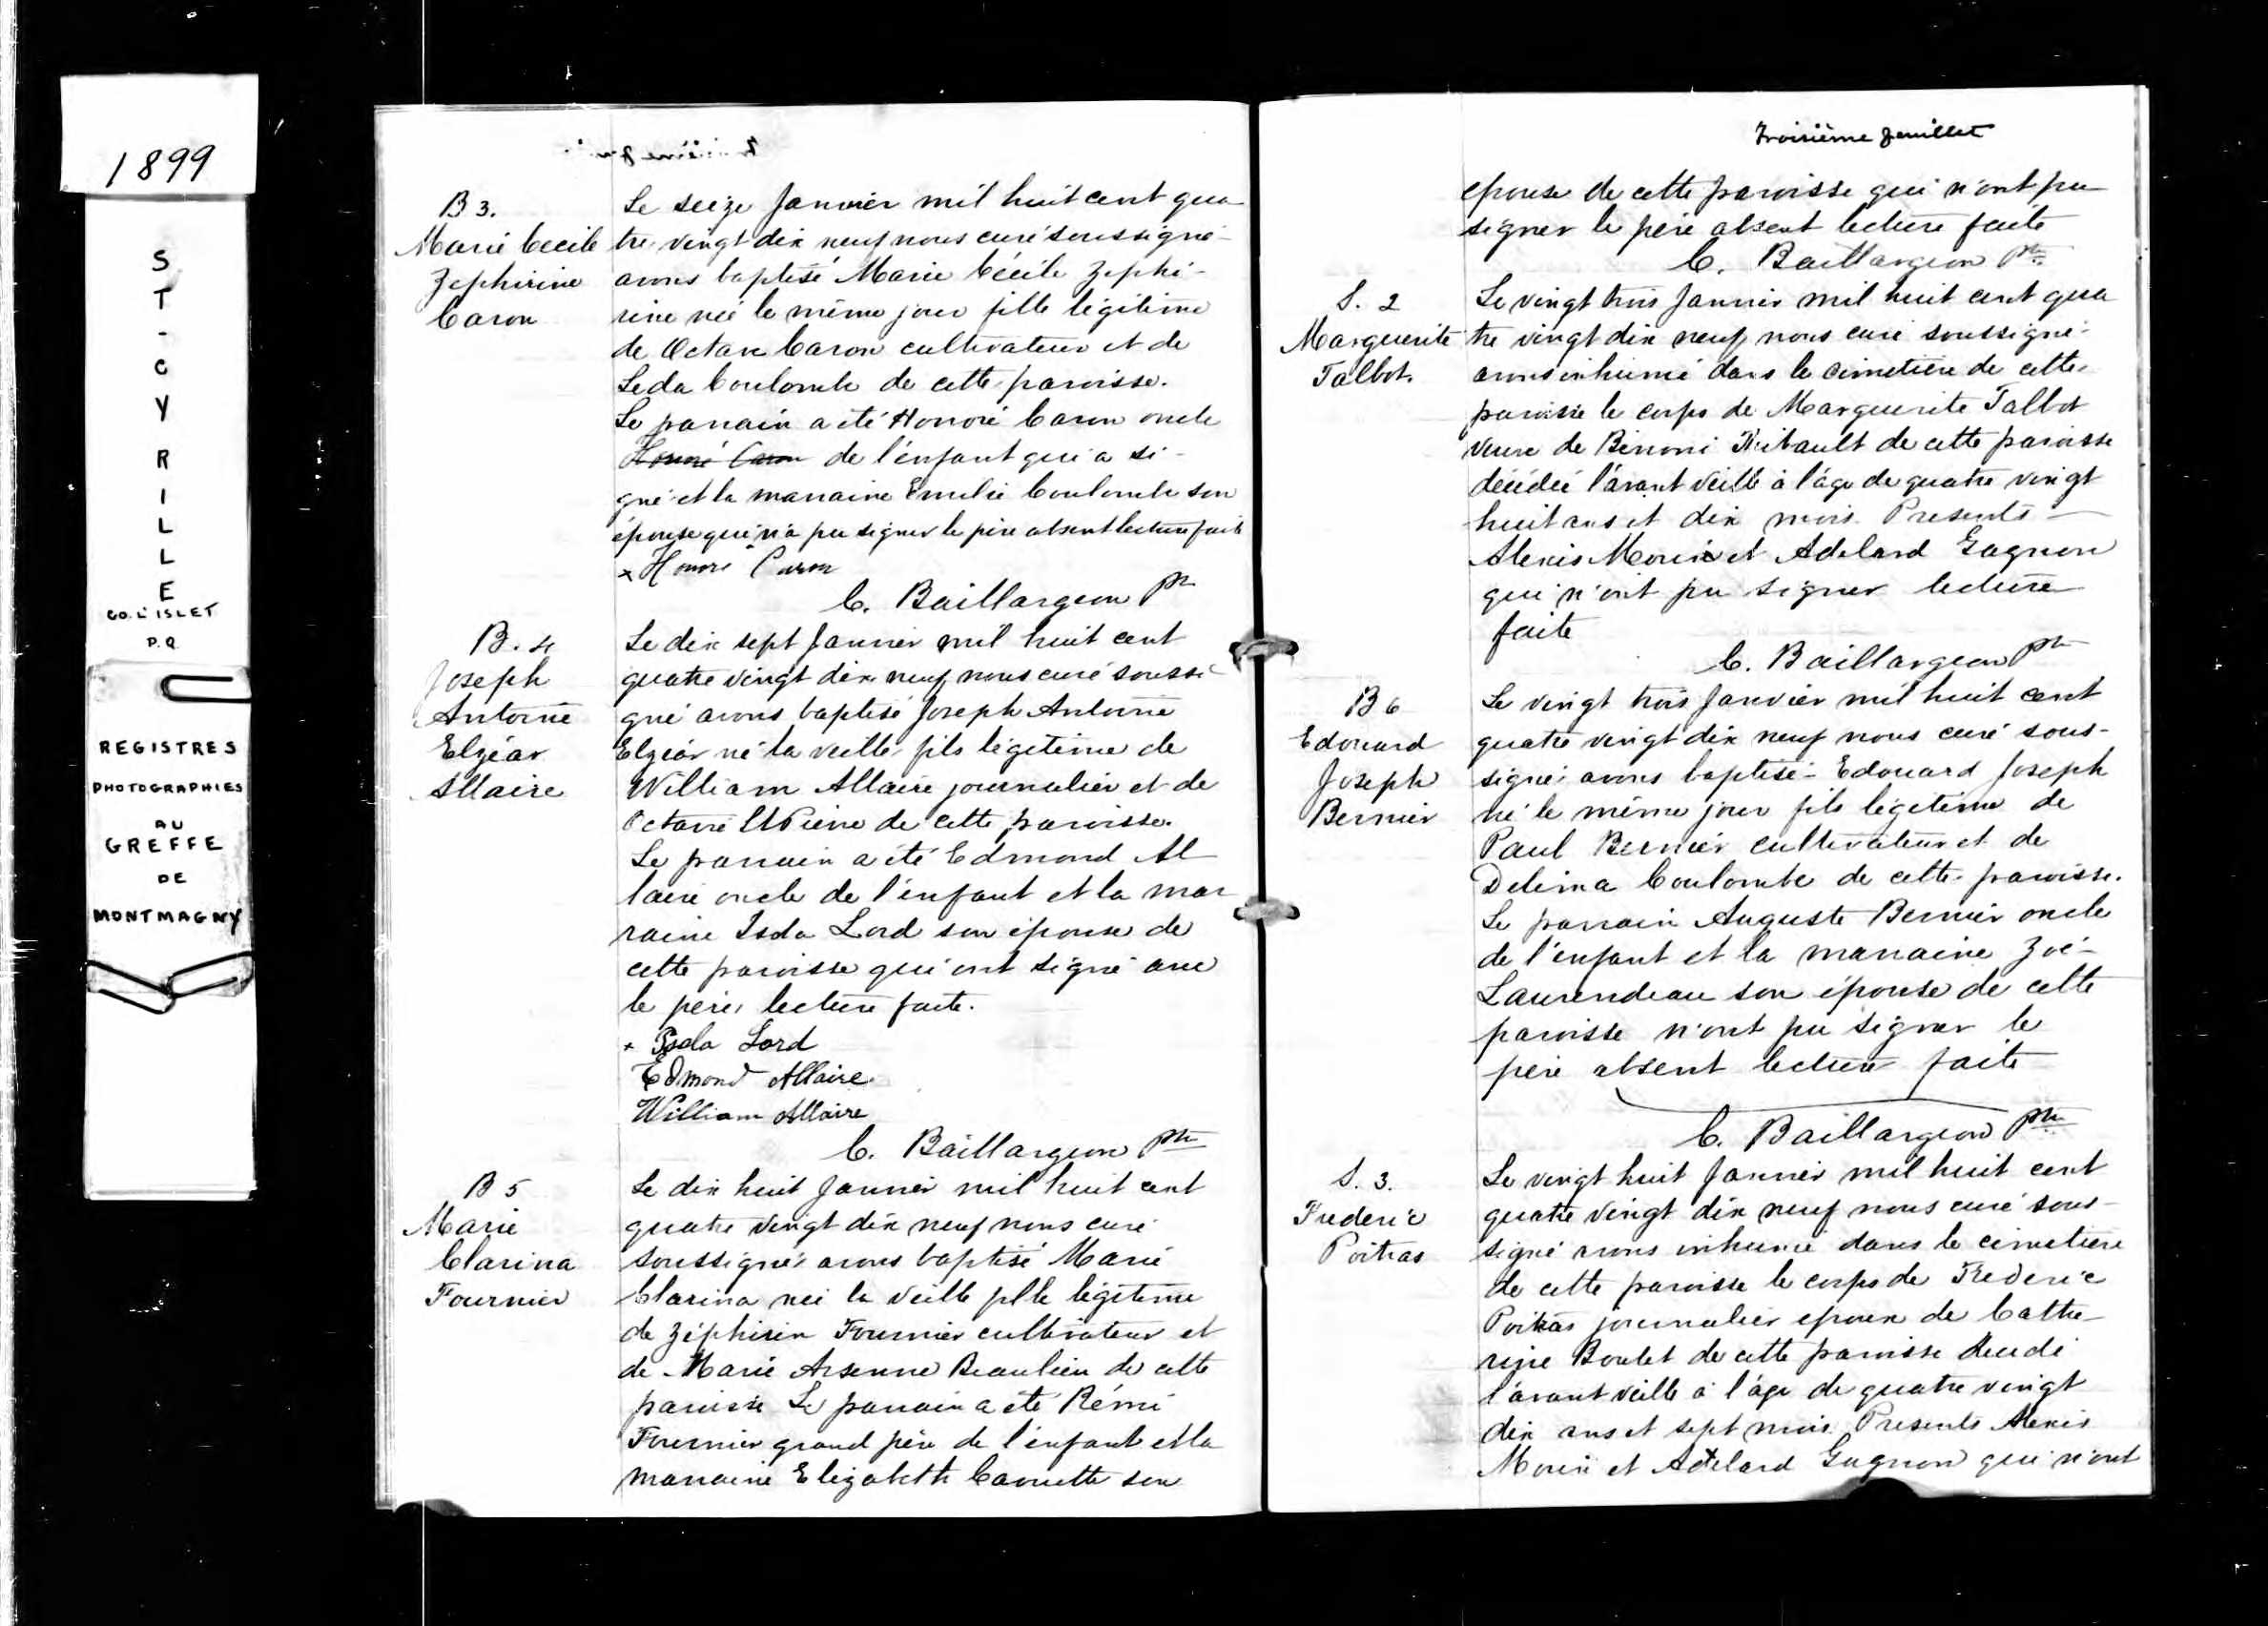 1899
ST-CYRILLE
CO. L'ISLET
P.Q
REGISTRES
PHOTOGRAPHIES
AU
GREFFE
DE
MONTMAGNY
B 3.
Marie Cecile
Zephirine
Caron
Le seize Janvier mil huit cent qua
tre vingt dix neuf nous curé soussigné
avons baptisé Marie Cécile Zephi-
rine née le même jour fille légitime
de Octave Caron cultivateur et de
Leda Coulombe de cette paroisse.
Le parrain a été Honoré Caron oncle
Honoré Caron de l'enfant qui a si-
gné et la marraine Emelie Coulombe son
épouse qui n'a pu signer le père absent lecture faite
x Honoré Caron
C. Baillargeon Ptre
B. 4
Joseph
Antoine
Elzéar
Allaire
Le dix sept Janvier mil huit cent
quatre vingt dix neuf nous curé soussi
gné avons baptisé Joseph Antoine
Elzéar né la veille fils légitime de
William Allaire journalier et de
Octavie StPierre de cette paroisse.
Le parrain a été Edmond Al
laire oncle de l'enfant et la mar
raine Isda Lord son épouse de
cette paroisse qui ont signé avec
le père, lecture faite.
x Isda Lord
Edmond Allaire
William Allaire
C. Baillargeon Ptre
B 5
Marie
Clarina
Fournier
Le dix huit Janvier mil huit cent
quatre vingt dix neuf nous curé
soussigné avons baptisé Marie
Clarina née la veille fille légitime
de Zéphirin Fournier cultivateur et
de Marie Arsenne Beaulieu de cette
paroisse Le parrain a été Rémi
Fournier grand père de l'enfant et la
marraine Elizabeth Caouette son
Troisième feuillet
epouse de cette paroisse qui n'ont pu
signer le père absent lecture faite
C. Baillargeon Ptre
S. 2
Marguerite
Talbot.
Le vingt trois Janvier mil huit cent qua
tre vingt dix neuf nous curé soussigné
avons inhumé dans le cimetière de cette
paroisse le corps de Marguerite Talbot
veuve de Benoni Thibault de cette paroisse
décédée l'avant veille à l'âge de quatre vingt
huit ans et dix mois. Presents
Alexis Morin et Adelard Gagnon
qui n'ont pu signer lecture
faite
C. Baillargeon Ptre
B 6
Edouard
Joseph
Bernier
Le vingt trois Janvier mil huit cent
quatre vingt dix neuf nous curé sous-
signé avons baptisé Edouard Joseph
né le même jour fils légitime de
Paul Bernier cultivateur et de
Delima Coulombe de cette paroisse.
Le parrain Auguste Bernier oncle
de l'enfant et la marraine Zoé
Laurendeau son épouse de cette
paroisse n'ont pu signer le
père absent lecture faite
C. Baillargeon Ptre
S. 3.
Frederic
Poitras
Le vingt huit Janvier mil huit cent
quatre vingt dix neuf nous curé sous-
signé avons inhumé dans le cimetiere
de cette paroisse le corps de Frederic
Poitras journalier epoux de Cathe-
rine Boulet de cette paroisse decedé
l'avant veille à l'âge de quatre vingt
dix ans et sept mois. Presents Alexis
Morin et Adelard Gagnon qui n'ont